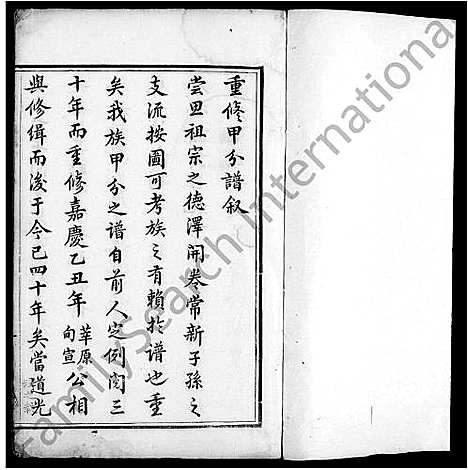 重修甲分譜叙
嘗思祖宗之德澤開卷常新子孫之
支流按圖可考族之有賴於譜也重
矣我族甲分之譜自前人定例閱三
十年而重修嘉慶乙丑年莘原句宣公相
與修緝而後于今已四十年矣當道光
FamilySearch International